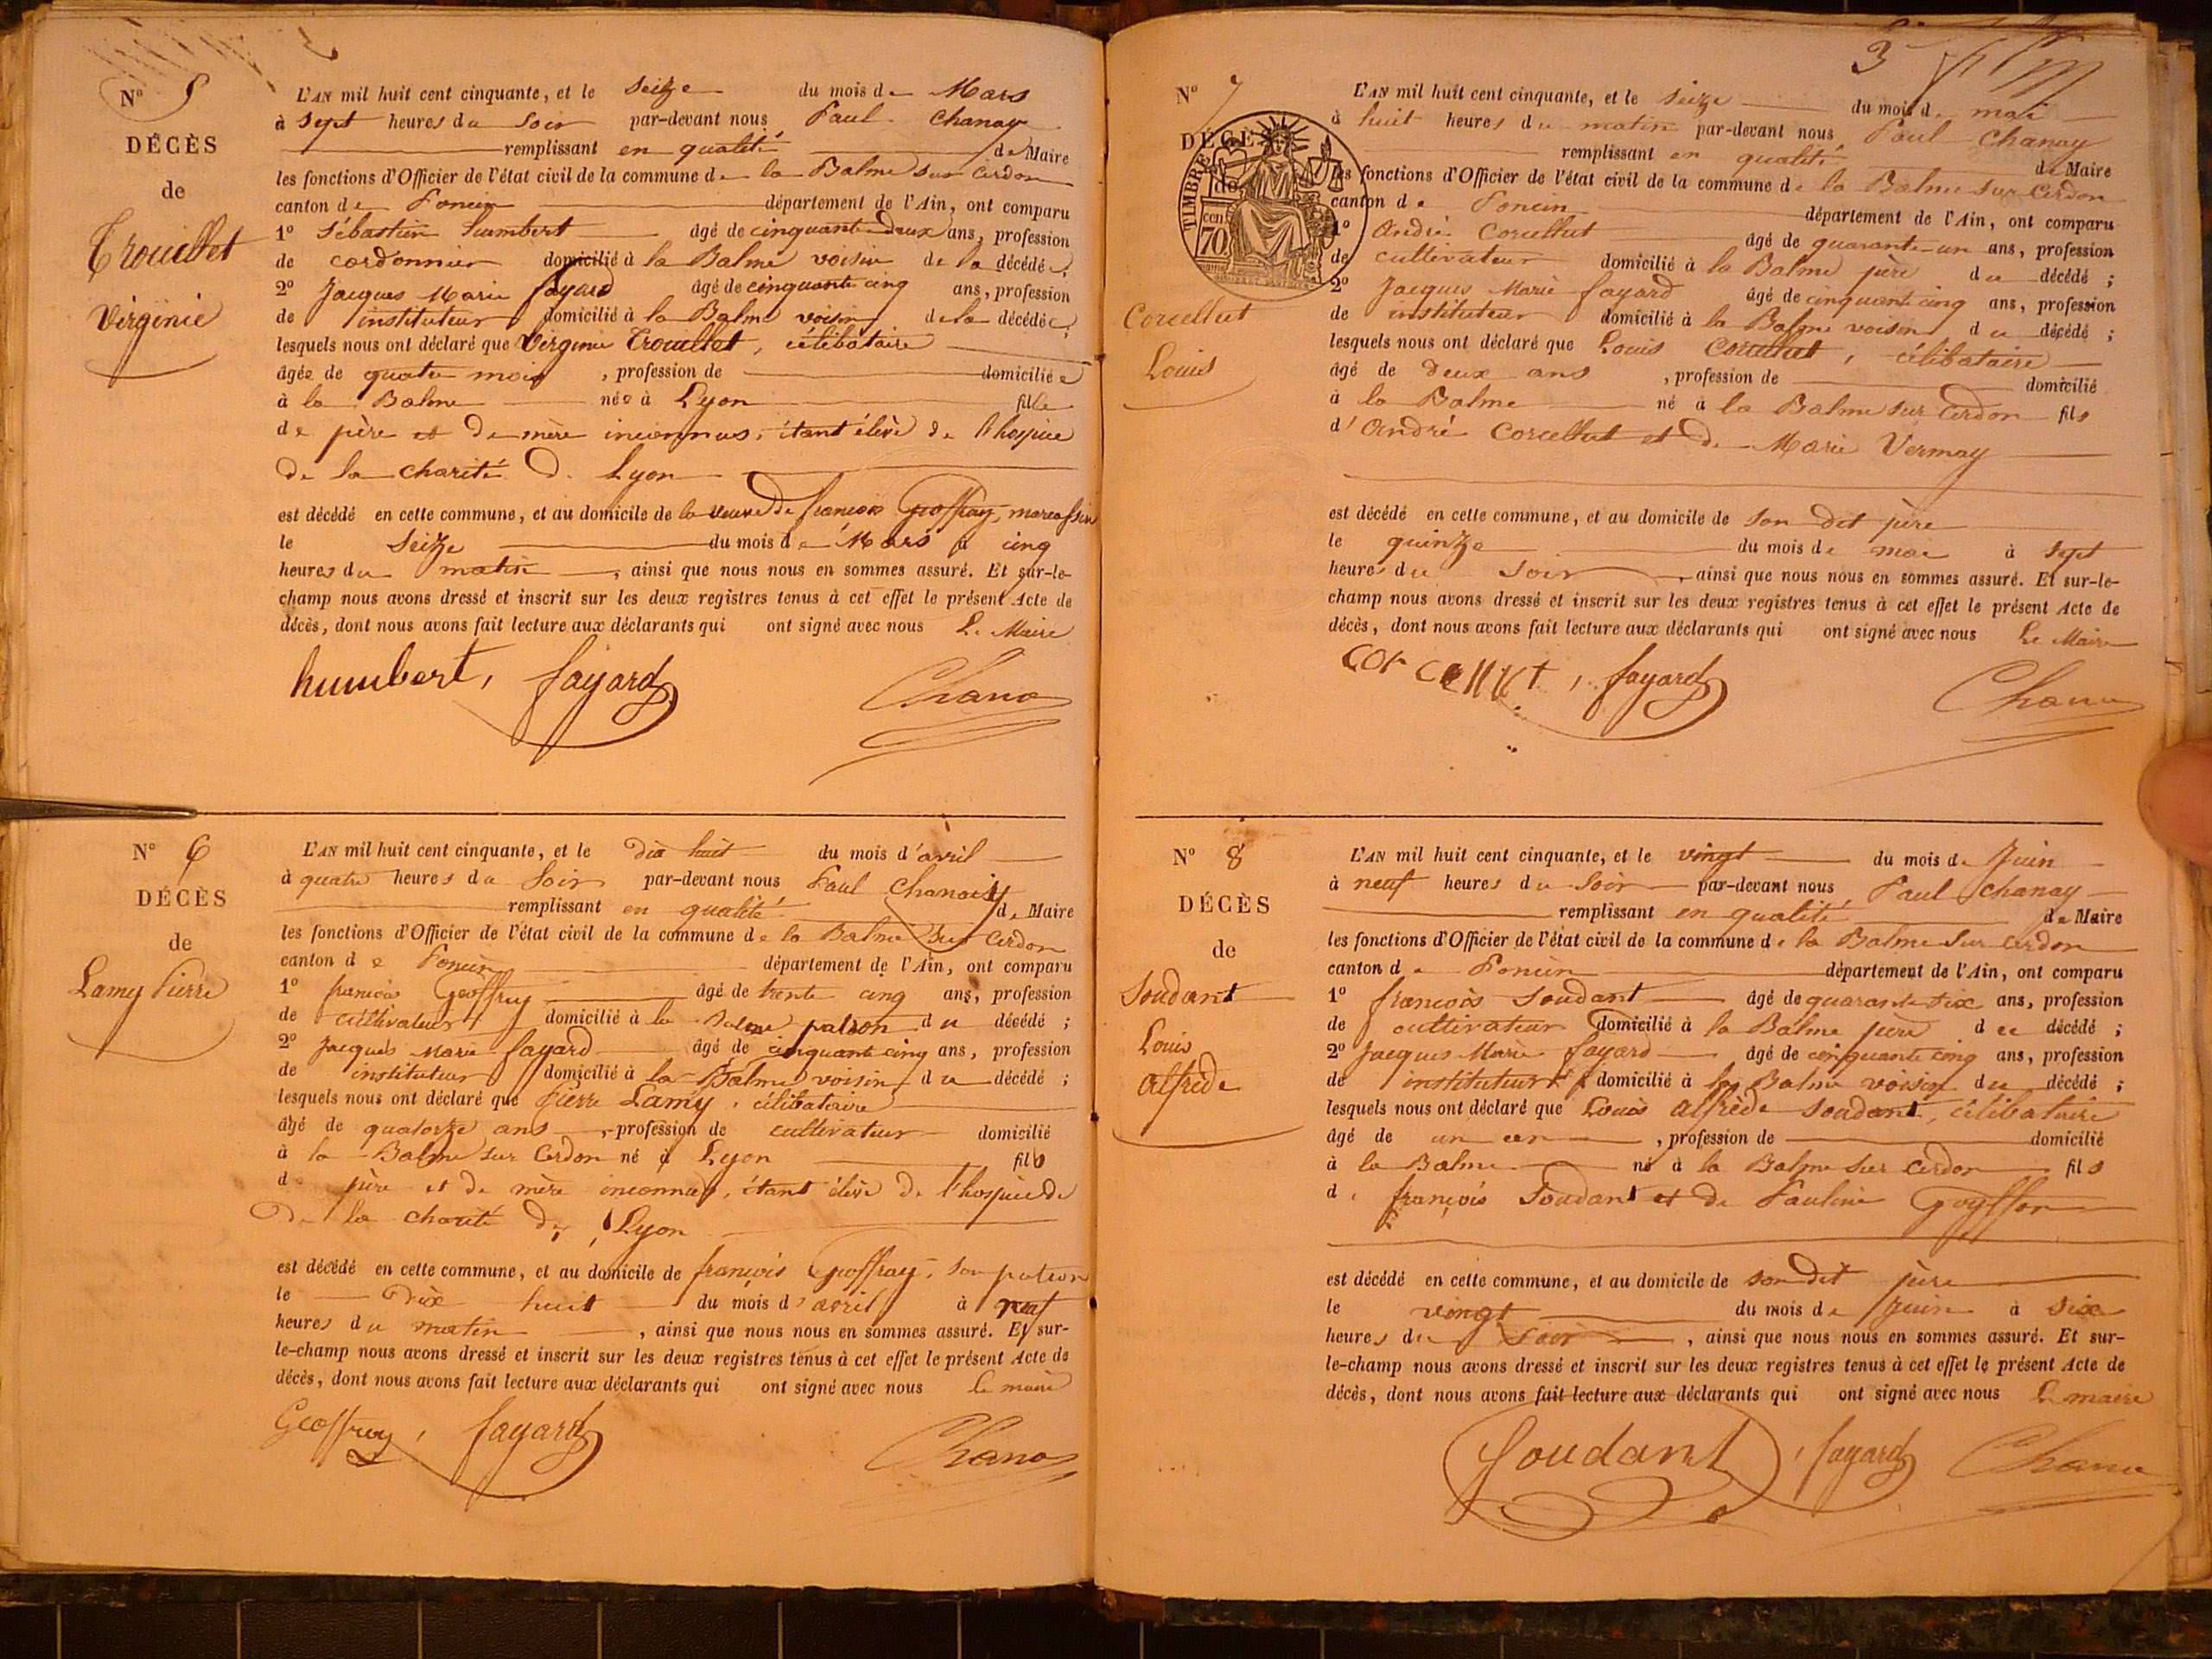 N° 5
DÉCÈS
de
Trouillet
Virginie
L'AN mil huit cent cinquante, et le seize du mois de Mars
à sept heures du soir par-devant nous Paul Chanay
remplissant en qualité de Maire
les fonctions d'Officier de l'état civil de la commune de la Balme sur Cerdon
canton de Poncin département de l'Ain, ont comparu
1° Sébastien humbert âgé de cinquante deux ans, profession
de cordonnier domicilié à la Balme voisin de la décédée;
2° Jacques Marie fayard âgé de cinquante cinq ans, profession
de instituteur domicilié à la Balme voisin de la décédée;
lesquels nous ont déclaré que Virginie Trouillet, célibataire
âgée de quatre mois, profession de domiciliée
à la Balme née à Lyon fille
de père et de mère inconnus, étant élève de l'hospice
de la charité de Lyon
est décédé en cette commune, et au domicile de la veuve de françois Geoffray,
le seize du mois de Mars à cinq
heures du matin, ainsi que nous nous en sommes assuré. Et sur-le-
champ nous avons dressé et inscrit sur les deux registres tenus à cet effet le présent Acte de
décès, dont nous avons fait lecture aux déclarants qui ont signé avec nous Le Maire
humbert, fayard Chanay
N° 6
DÉCÈS
de
Lamy Pierre
L'AN mil huit cent cinquante, et le dix huit du mois d'avril
à quatre heures du soir par-devant nous Paul Chanay
remplissant en qualité de Maire
les fonctions d'Officier de l'état civil de la commune de la Balme sur Cerdon
canton de Poncin département de l'Ain, ont comparu
1° françois Geoffray âgé de trente cinq ans, profession
de cultivateur domicilié à la Balme patron du décédé;
2° Jacques Marie fayard âgé de cinquante cinq ans, profession
de instituteur domicilié à la Balme voisin du décédé;
lesquels nous ont déclaré que Pierre Lamy, célibataire
âgé de quatorze ans, profession de cultivateur domicilié
à la Balme sur Cerdon né à Lyon fils
de père et de mère inconnus, étant élève de l'hospice de
de la charité de Lyon
est décédé en cette commune, et au domicile de françois Geoffray, son patron
le dix huit du mois d'avril à neuf
heures du matin, ainsi que nous nous en sommes assuré. Et sur-
le-champ nous avons dressé et inscrit sur les deux registres tenus à cet effet le présent Acte de
décès, dont nous avons fait lecture aux déclarants qui ont signé avec nous Le maire
Geoffray, fayard Chanay
3
N° 7
DÉCÈS
de
TIMBRE
70
Corcellut
Louis
L'AN mil huit cent cinquante, et le seize du mois de mai
à huit heures du matin par-devant nous Paul Chanay
remplissant en qualité de Maire
les fonctions d'Officier de l'état civil de la commune de la Balme sur Cerdon
canton de Poncin département de l'Ain, ont comparu
1° André Corcellut âgé de quarante-un ans, profession
de cultivateur domicilié à la Balme père du décédé;
2° Jacques Marie fayard âgé de cinquante cinq ans, profession
de instituteur domicilié à la Balme voisin du décédé;
lesquels nous ont déclaré que Louis Corcellut, célibataire
âgé de deux ans, profession de domicilié
à la Balme né à la Balme sur Cerdon fils
d'André Corcellut et de Marie Vermay
est décédé en cette commune, et au domicile de son dit père
le quinze du mois de mai à sept
heures du soir, ainsi que nous nous en sommes assuré. Et sur-le-
champ nous avons dressé et inscrit sur les deux registres tenus à cet effet le présent Acte de
décès, dont nous avons fait lecture aux déclarants qui ont signé avec nous Le Maire
corcellut, fayard Chanay
N° 8
DÉCÈS
de
Soudant
Louis
alfrède
L'AN mil huit cent cinquante, et le vingt du mois de Juin
à neuf heures du soir par-devant nous Paul Chanay
remplissant en qualité de Maire
les fonctions d'Officier de l'état civil de la commune de la Balme sur Cerdon
canton de Poncin département de l'Ain, ont comparu
1° françois Soudant âgé de quarante six ans, profession
de cultivateur domicilié à la Balme père du décédé;
2° Jacques Marie fayard âgé de cinquante cinq ans, profession
de instituteur domicilié à la Balme voisin du décédé;
lesquels nous ont déclaré que Louis alfrède Soudant, célibataire
âgé de un an, profession de domicilié
à la Balme né à la Balme sur Cerdon fils
de françois Soudant et de Pauline Goyffon
est décédé en cette commune, et au domicile de son dit père
le vingt du mois de Juin à six
heures du soir, ainsi que nous nous en sommes assuré. Et sur-
le-champ nous avons dressé et inscrit sur les deux registres tenus à cet effet le présent Acte de
décès, dont nous avons fait lecture aux déclarants qui ont signé avec nous Le maire
Soudant, fayard Chanay